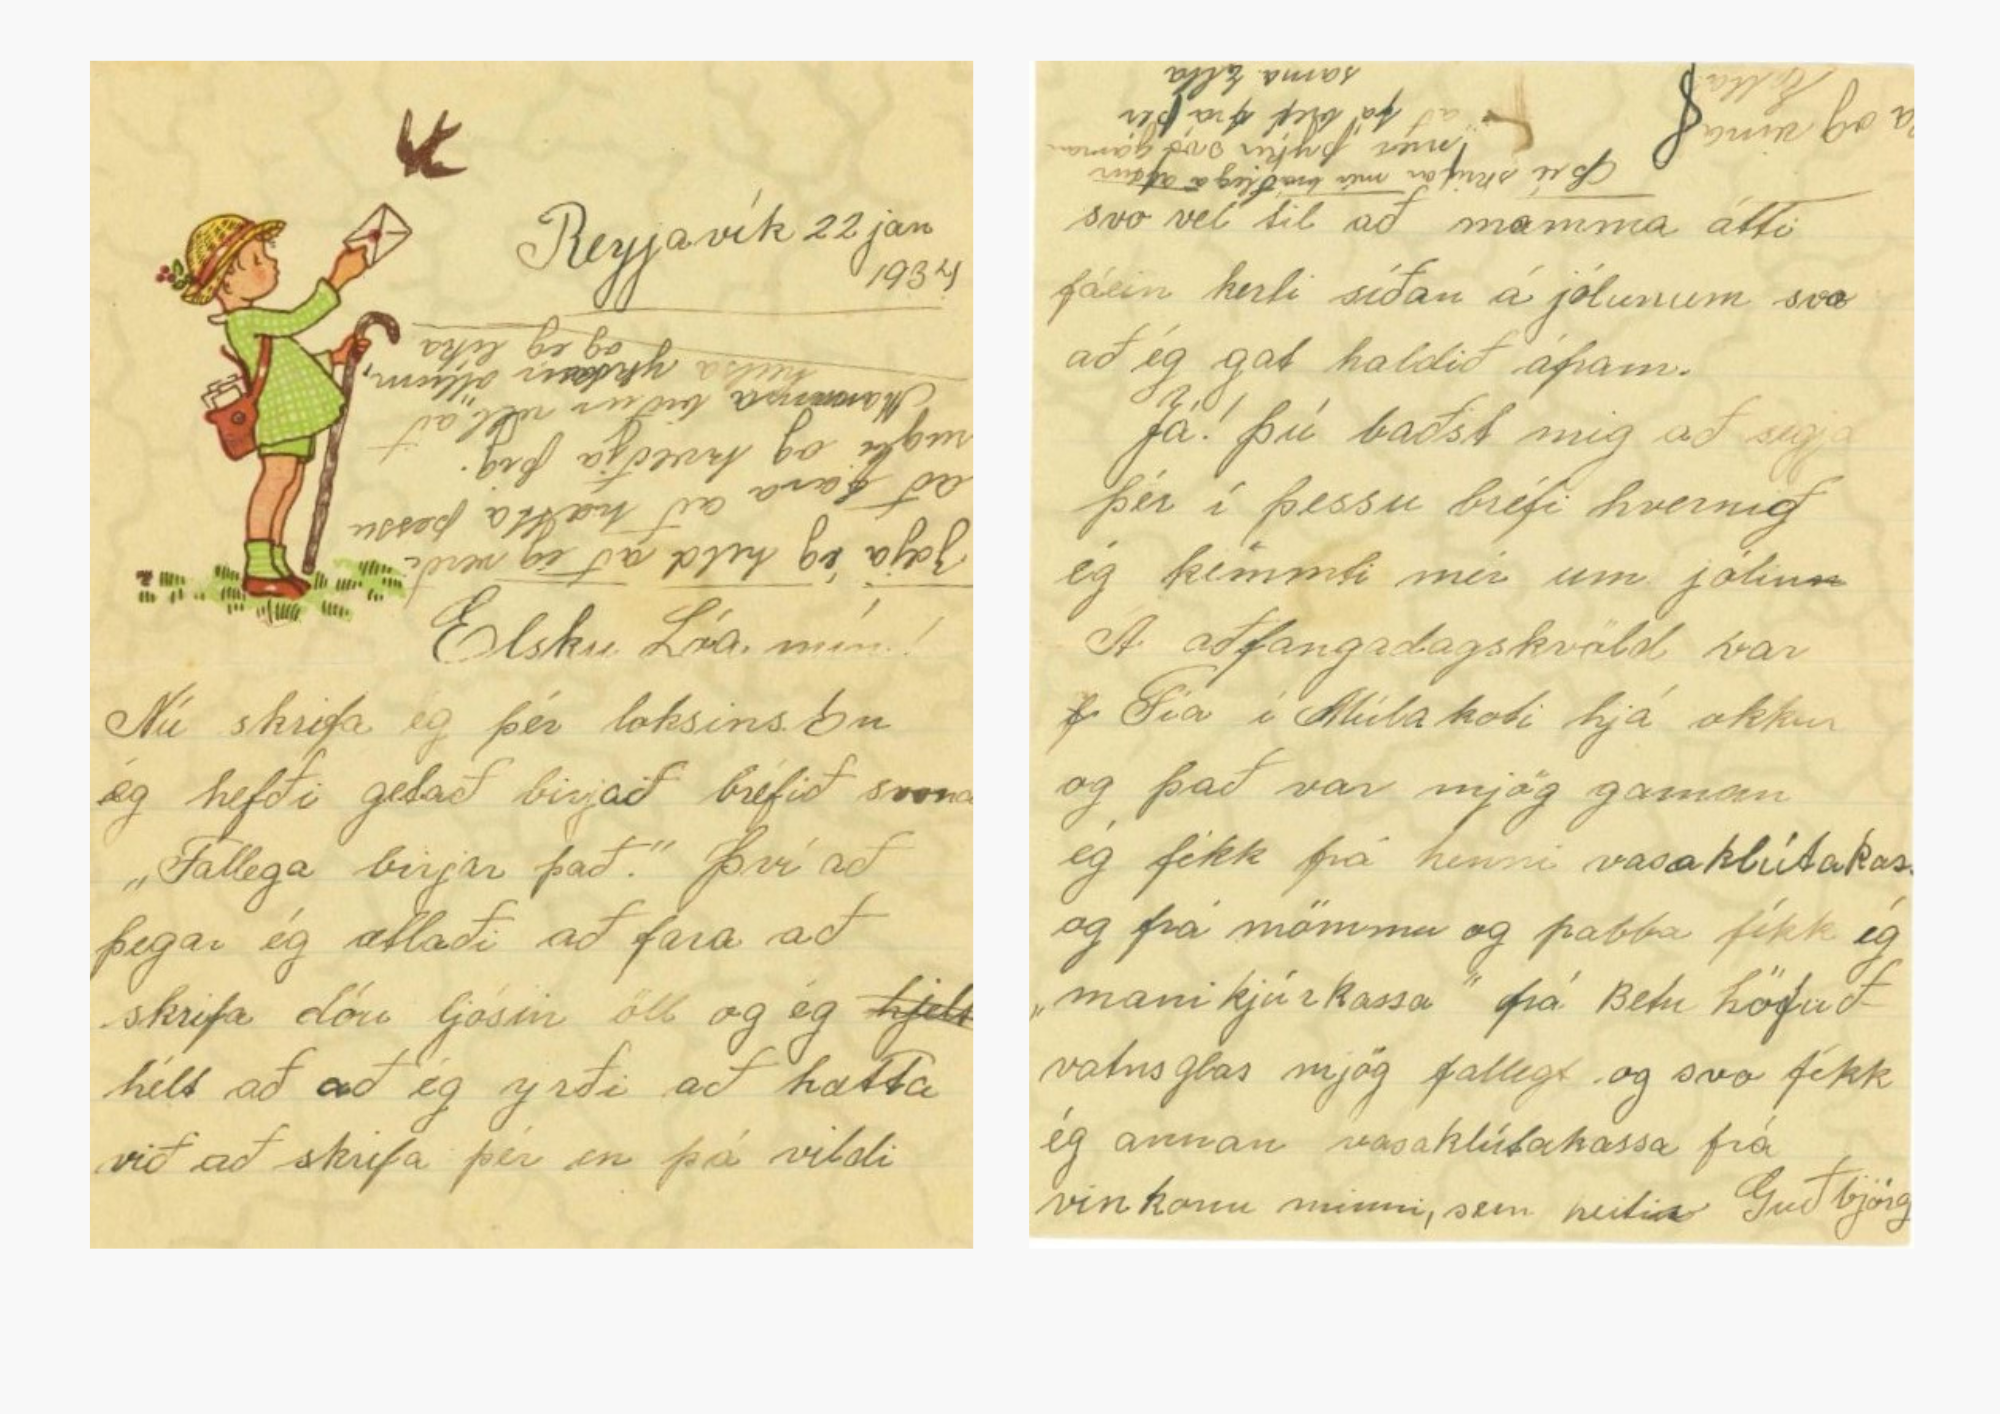 Reyjavík 22 jan
1937
Elsku Lóa mín!
Nú skrifa ég þér loksins. En
ég hefði getað birjað bréfið svona
„Fallega birjar það." Því að
þegar ég ætlaði að fara að
skrifa dóu ljósin öll og ég hjelt
hélt að að ég yrði að hætta
við að skrifa þér en þá vildi
Jæja ég held að ég verði
að fara að hætta þessu
rugli og kveðja þig.
Mamma biður vel að
heilsa ykkur öllum,
og ég líka
svo vel til að mamma átti
fáein kerti síðan á jólunum svo
að ég gat haldið áfram.
Já! Já! þú baðst mig að segja
þér í þessu bréfi hvernig
ég kemmti mér um jólinn
Á aðfangadagskvöld var
f Fía í Múlakoti hjá okkur
og það var mjög gaman
ég fékk frá henni vasaklútakas.
og frá mömmu og pabba fékk ég
„manikjúrkassa" frá Betu höfuð-
vatnsglas mjög fallegt og svo fékk
ég annan vasaklútakassa frá
vinkonu minni, sem heitir Guðbjörg
Þú skrifar mér bráðlega aftur
mér þykir svo gaman
að fá bréf frá þér
sama Ella
a og vina
Ella